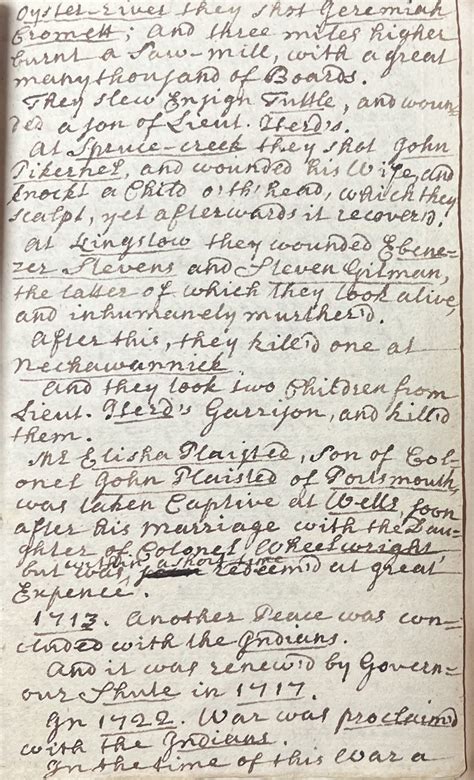 Oyster-River they shot Jeremiah
Cromett; and three miles higher
burnt a Saw-mill, with a great
many thousand of Boards.
They slew Ensign Tuttle, and woun-
ded a son of Lieut. Herd's.
At Spruce-creek they shot John
Pikernel, and wounded his Wife, and
knockt a Child o'th' head, which they
scalpt, yet afterwards it recover'd.
At Kingstow they wounded Ebene-
zer Stevens and Steven Gilman,
the latter of which they took alive,
and inhumanely murther'd.
After this, they kill'd one at
Nechawannick.
And they took two Children from
Lieut. Herd's Garrison, and kill'd
them.
Mr Elisha Plaisted, son of Col-
onel John Plaisted of Portsmouth,
was taken Captive at Wells, soon
after his marriage with the Dau-
ghter of Colonel Wheelwright,
but was, within a short time redeem'd at great
Expence.
1713. Another Peace was con-
cluded with the Indians.
And it was renew'd by Govern-
our Shute in 1717.
In 1722. War was proclaim'd
with the Indians.
In the time of this War a